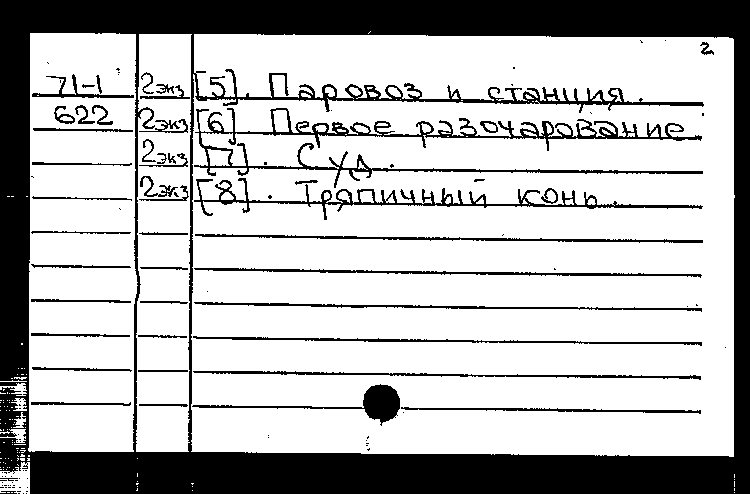 2
71-1 2экз [5]. Паровоз и станция.
622 2экз [6] Первое разочарование.
2экз [7]. Суд.
2экз [8]. Тряпичный конь.